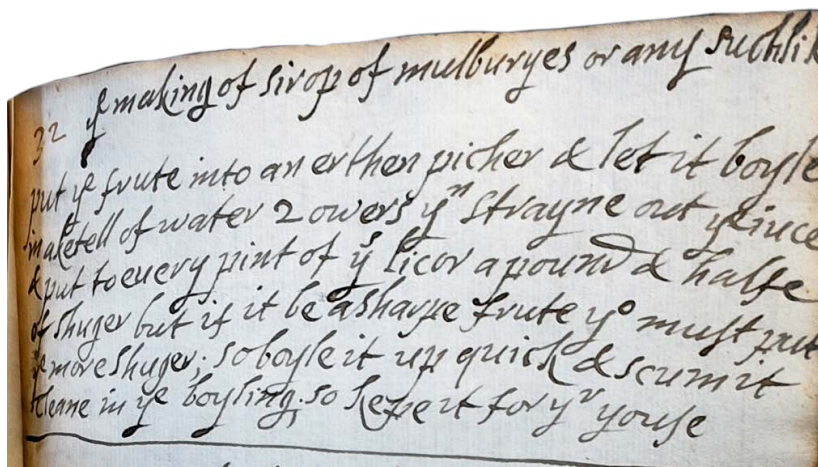 ye making of sirop of mulburyes or any suchlik
32
put ye frute into an erthen picher & let it boyle
in a ketell of water 2 owers yn strayne out ye iuce
& put to euery pint of ys licor a pound & halfe
of shuger but if it be a sharpe frute yo must put
ye more shuger; so boyle it up quick & scum it
cleane in ye boyling; so kepe it for yr youse